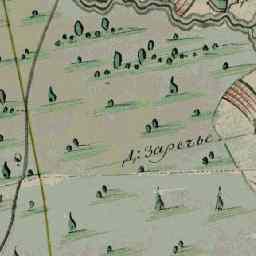 Д: Заречье